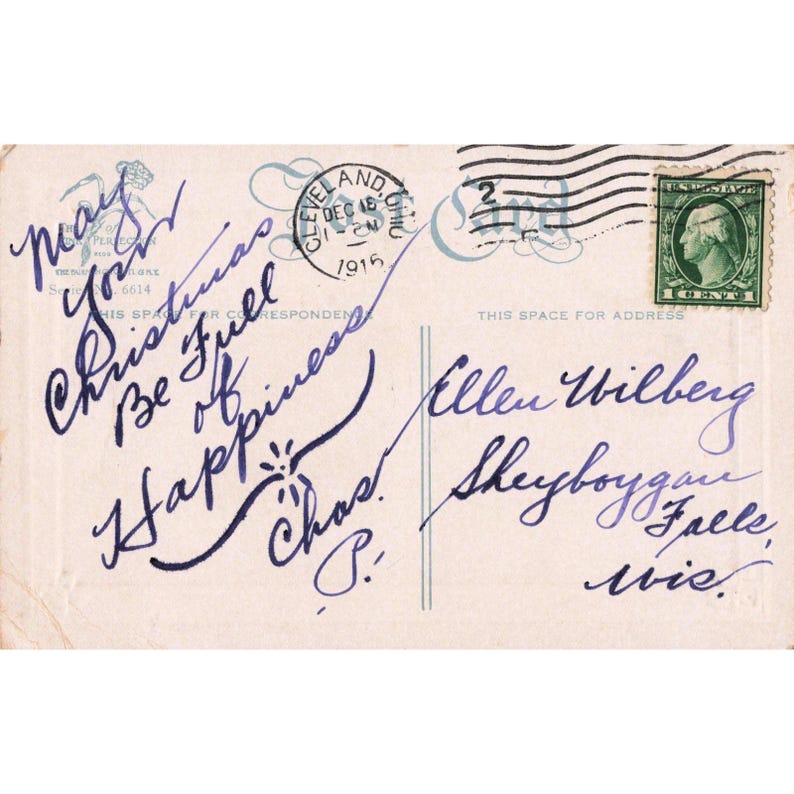 May
Your
Christmas
Be Full
of
Happiness
Chas.
P.
Post Card
CLEVELAND, OHIO
DEC 18
1915
2
U.S. POSTAGE
1 CENT 1
THE
PINK OF PERFECTION
Series No. 6614
THIS SPACE FOR CORRESPONDENCE
THIS SPACE FOR ADDRESS
Ellen Wilberg
Sheyboygan
Falls,
Wis.